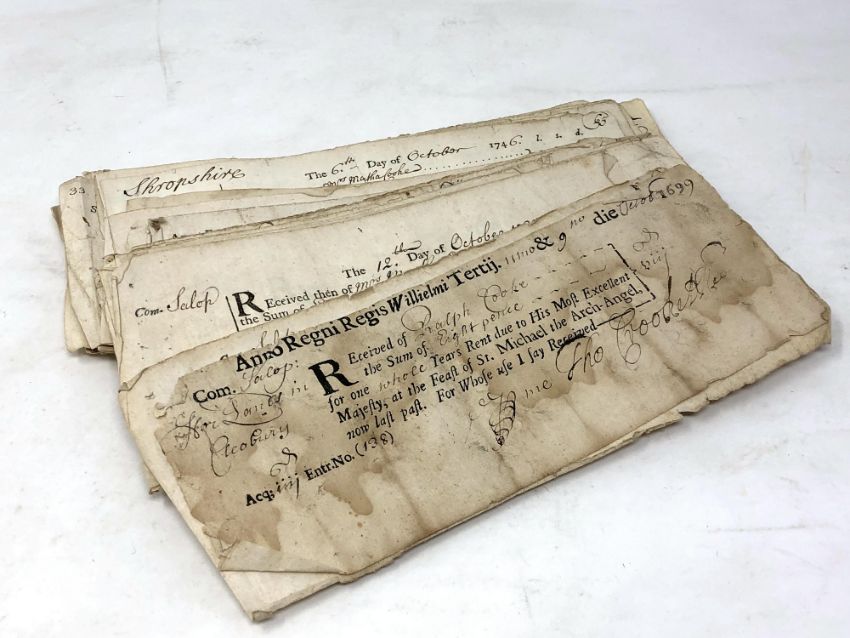 33
Shropshire The 6.th Day of October 1746. l. s. d.
Com. Salop The 12th Day of October
REceived then of
the Sum of
Anno Regni Regis Willielmi Tertij. 11mo & 9no die Octob 1699
Com. Salop:
REceived of Ralph Cooke
the Sum of Eight pence
for one whole Years Rent due to His Most Excellent
Majesty, at the Feast of St. Michael the Arch-Angel,
now last past. For Whose use I say Received
viij d
for Lands in
Acq; iiij d Entr. No. (138)